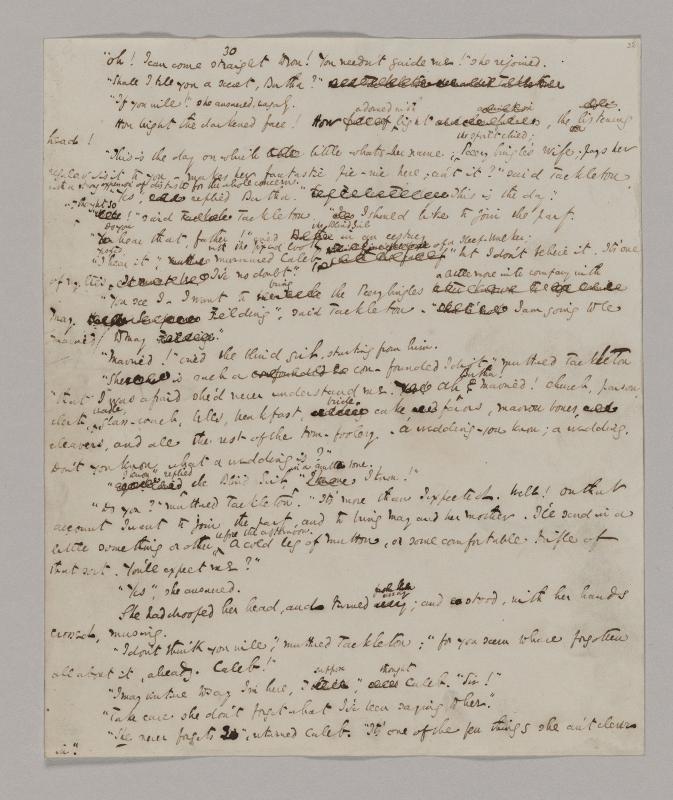 30
"Oh! I can come straight to you! You needn't guide me!" she rejoined.
"Shall I tell you a secret, Bertha?"
"If you will!" she answered, eagerly.
adorned with
How bright the darkened face! How light, the listening
head!
the spoilt child;
"This is the day on which little what's-her-name; Peerybingle's Wife; pays her
regular visit to you – makes her fantastic Pic-nic here; an't it?" said Tackleton
with a strong expression of distaste for the whole concern.
"Yes," replied Bertha. "This is the day."
"I thought so
!" said Tackleton. "I should like to join the party."
Do you the Blind Girl
hear that, father!" cried in an ecstasy.
"Yes, yes, I hear it," murmured Caleb, with the fixed look of a sleep-walker; "but I don't believe it. It's one
of my lies, I've no doubt."
bring a little more into company with
"You see I – I want to the Peerybingles
May Fielding," said Tackleton. "I am going to be
married to May."
"Married!" cried the Blind Girl, starting from him.
"She's such a con-founded Idiot," muttered Tackleton
Bertha!
"that I was afraid she'd never understand me. Ah married! Church, parson,
clerk, beadle, glass-coach, bells, breakfast, bride-cake, favors, marrow bones,
cleavers, and all the rest of the tom-foolery. A wedding – you know; a wedding.
Don't you know what a wedding is?"
"I know," replied the Blind Girl, in a gentle tone. "I know!"
"Do you?" muttered Tackleton. "It's more than I expected. Well! on that
account I want to join the party, and to bring May and her mother. I'll send in a
before the afternoon.
little something or other, A cold leg of mutton, or some comfortable trifle of
that sort. You'll expect me?"
"Yes," she answered.
She had drooped her head, and turned away; and stood, with her hands
crossed, musing.
"I don't think you will," muttered Tackleton; "for you seem to have forgotten
all about it, already. Caleb!"
suppose thought
"I may venture to say I'm here, I," Caleb. "Sir!"
"Take care she don't forget what I've been saying to her."
"She never forgets," returned Caleb. "It's one of the few things she an't clever
in."